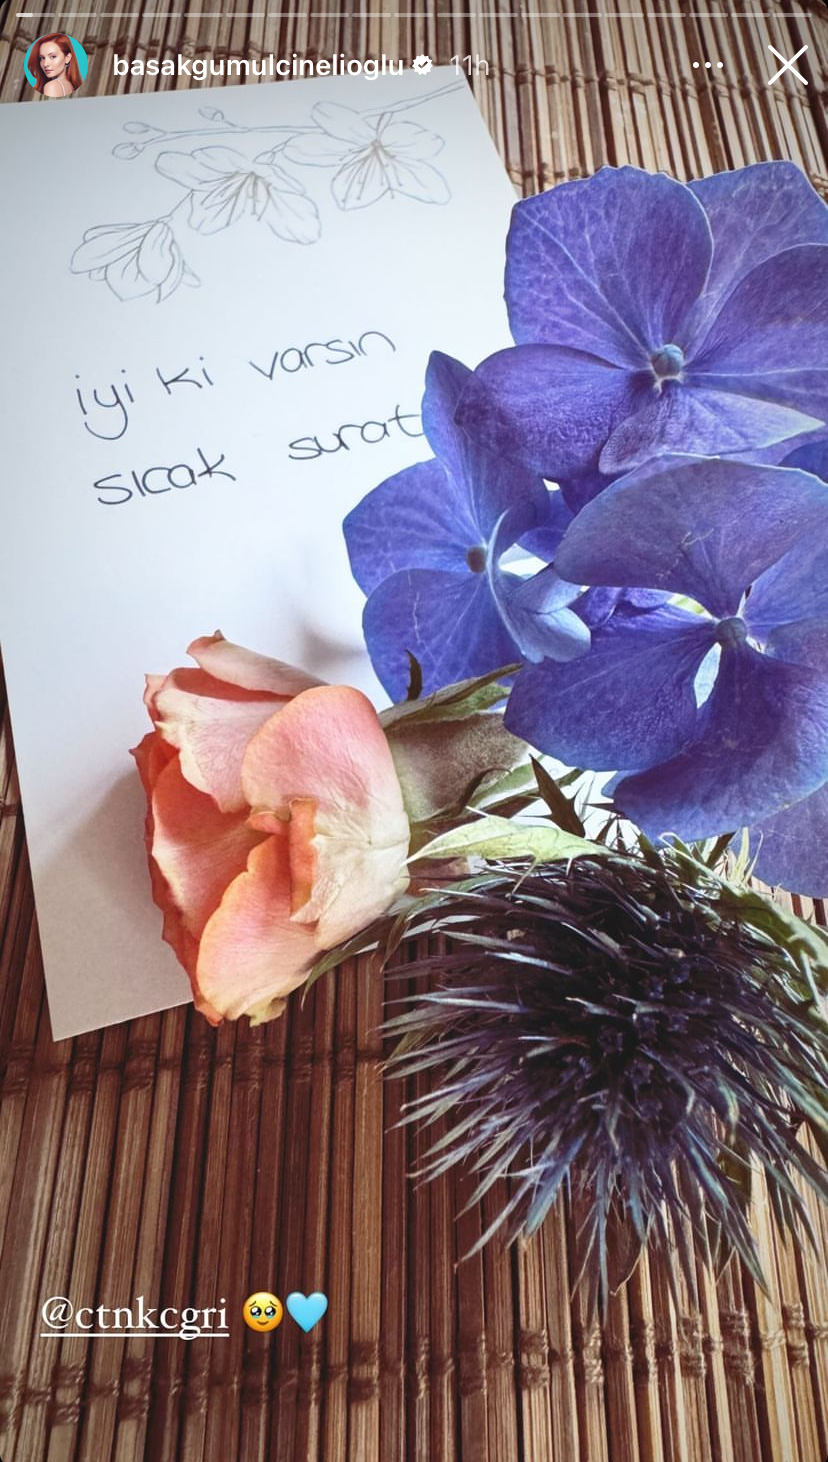 basakgumulcinelioglu 11h
iyi ki varsın
sıcak surat
@ctnkcgri 🥹🩵